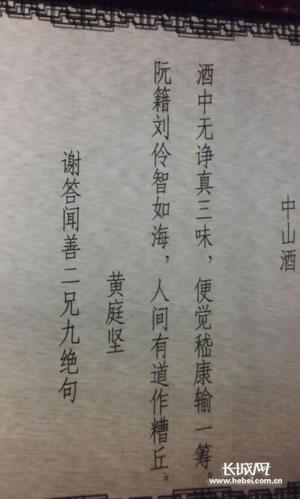 中山酒
酒中无诤真三味，便觉嵇康输一筹。
阮籍刘伶智如海，人间有道作糟丘。
黄庭坚
谢答闻善二兄九绝句
长城网
www.hebei.com.cn